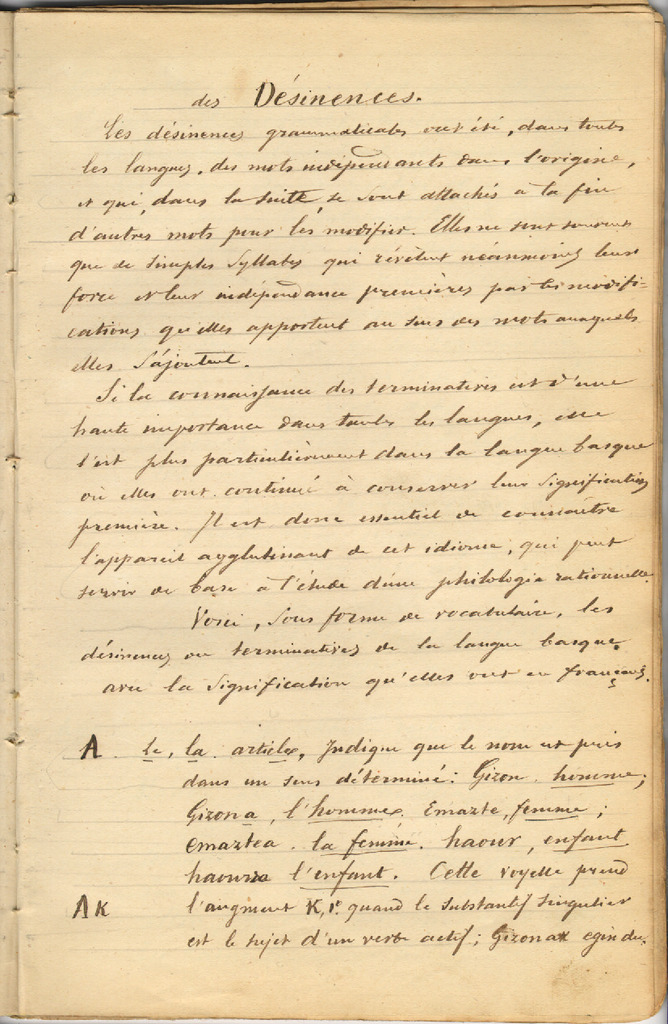 des Désinences.
Les désinences grammaticales ont été, dans toutes
les langues, des mots indépendants dans l'origine,
et qui, dans la suite, se sont attachés à la fin
d'autres mots pour les modifier. Elles ne sont souvent
que de simples syllabes qui révèlent néanmoins leur
force et leur indépendance premières par les modifi-
cations qu'elles apportent au sens des mots auxquels
elles s'ajoutent.
Si la connaissance des terminatives est d'une
haute importance dans toutes les langues, elle
l'est plus particulièrement dans la langue basque
où elles ont continué à conserver leur signification
première. Il est donc essentiel de connaître
l'appareil agglutinant de cet idiome, qui peut
servir de base à l'étude d'une philologie rationnelle.
Voici, sous forme de vocabulaire, les
désinences ou terminatives de la langue basque
avec la signification qu'elles ont en français.
A Le, la. article, Indique que le nom est pris
dans un sens déterminé: Gizon. homme;
Gizona, l'homme. Emazte, femme;
emaztea. la femme. haour, enfant
haourra l'enfant. Cette voyelle prend
AK l'augment K, 1º. quand le substantif singulier
est le sujet d'un verbe actif; Gizonak egin du.